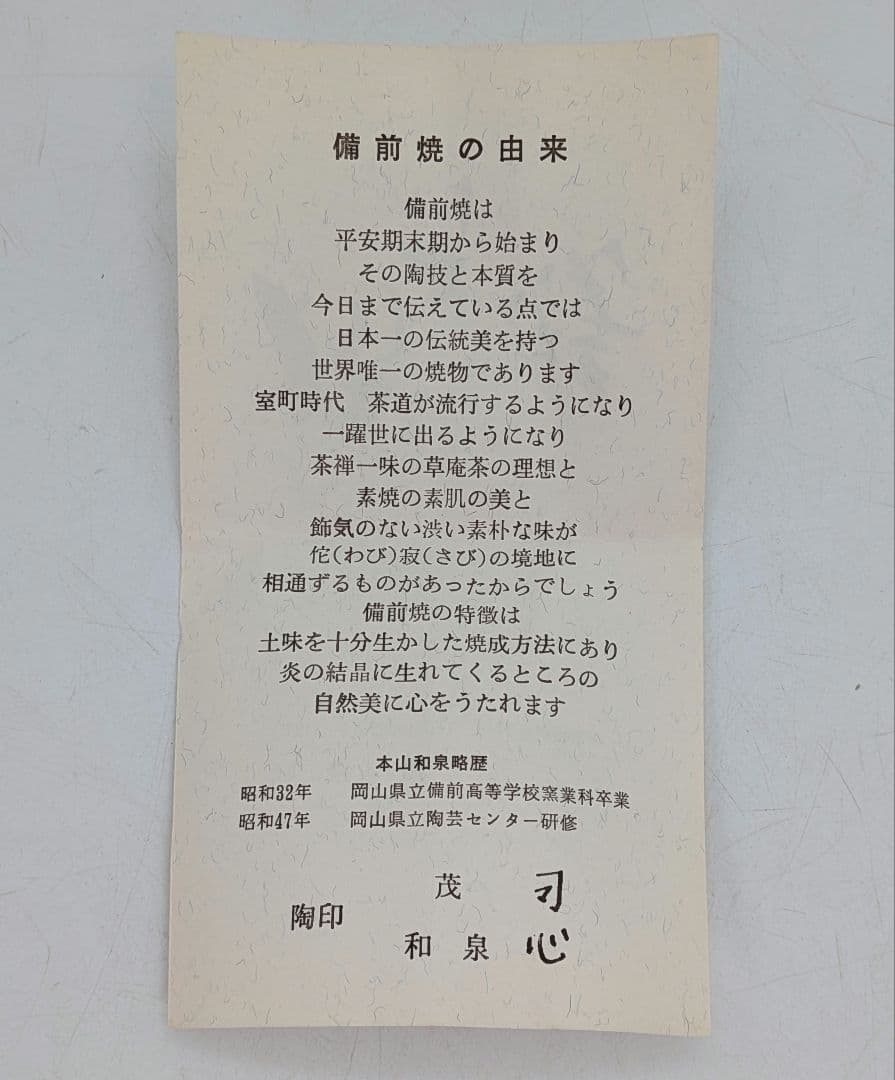 備前焼の由来
備前焼は
平安期末期から始まり
その陶技と本質を
今日まで伝えている点では
日本一の伝統美を持つ
世界唯一の焼物であります
室町時代　茶道が流行するようになり
一躍世に出るようになり
茶禅一味の草庵茶の理想と
素焼の素肌の美と
飾気のない渋い素朴な味が
佗(わび)寂(さび)の境地に
相通ずるものがあったからでしょう
備前焼の特徴は
土味を十分生かした焼成方法にあり
炎の結晶に生れてくるところの
自然美に心をうたれます
本山和泉略歴
昭和32年　岡山県立備前高等学校窯業科卒業
昭和47年　岡山県立陶芸センター研修
陶印
茂
和泉 心